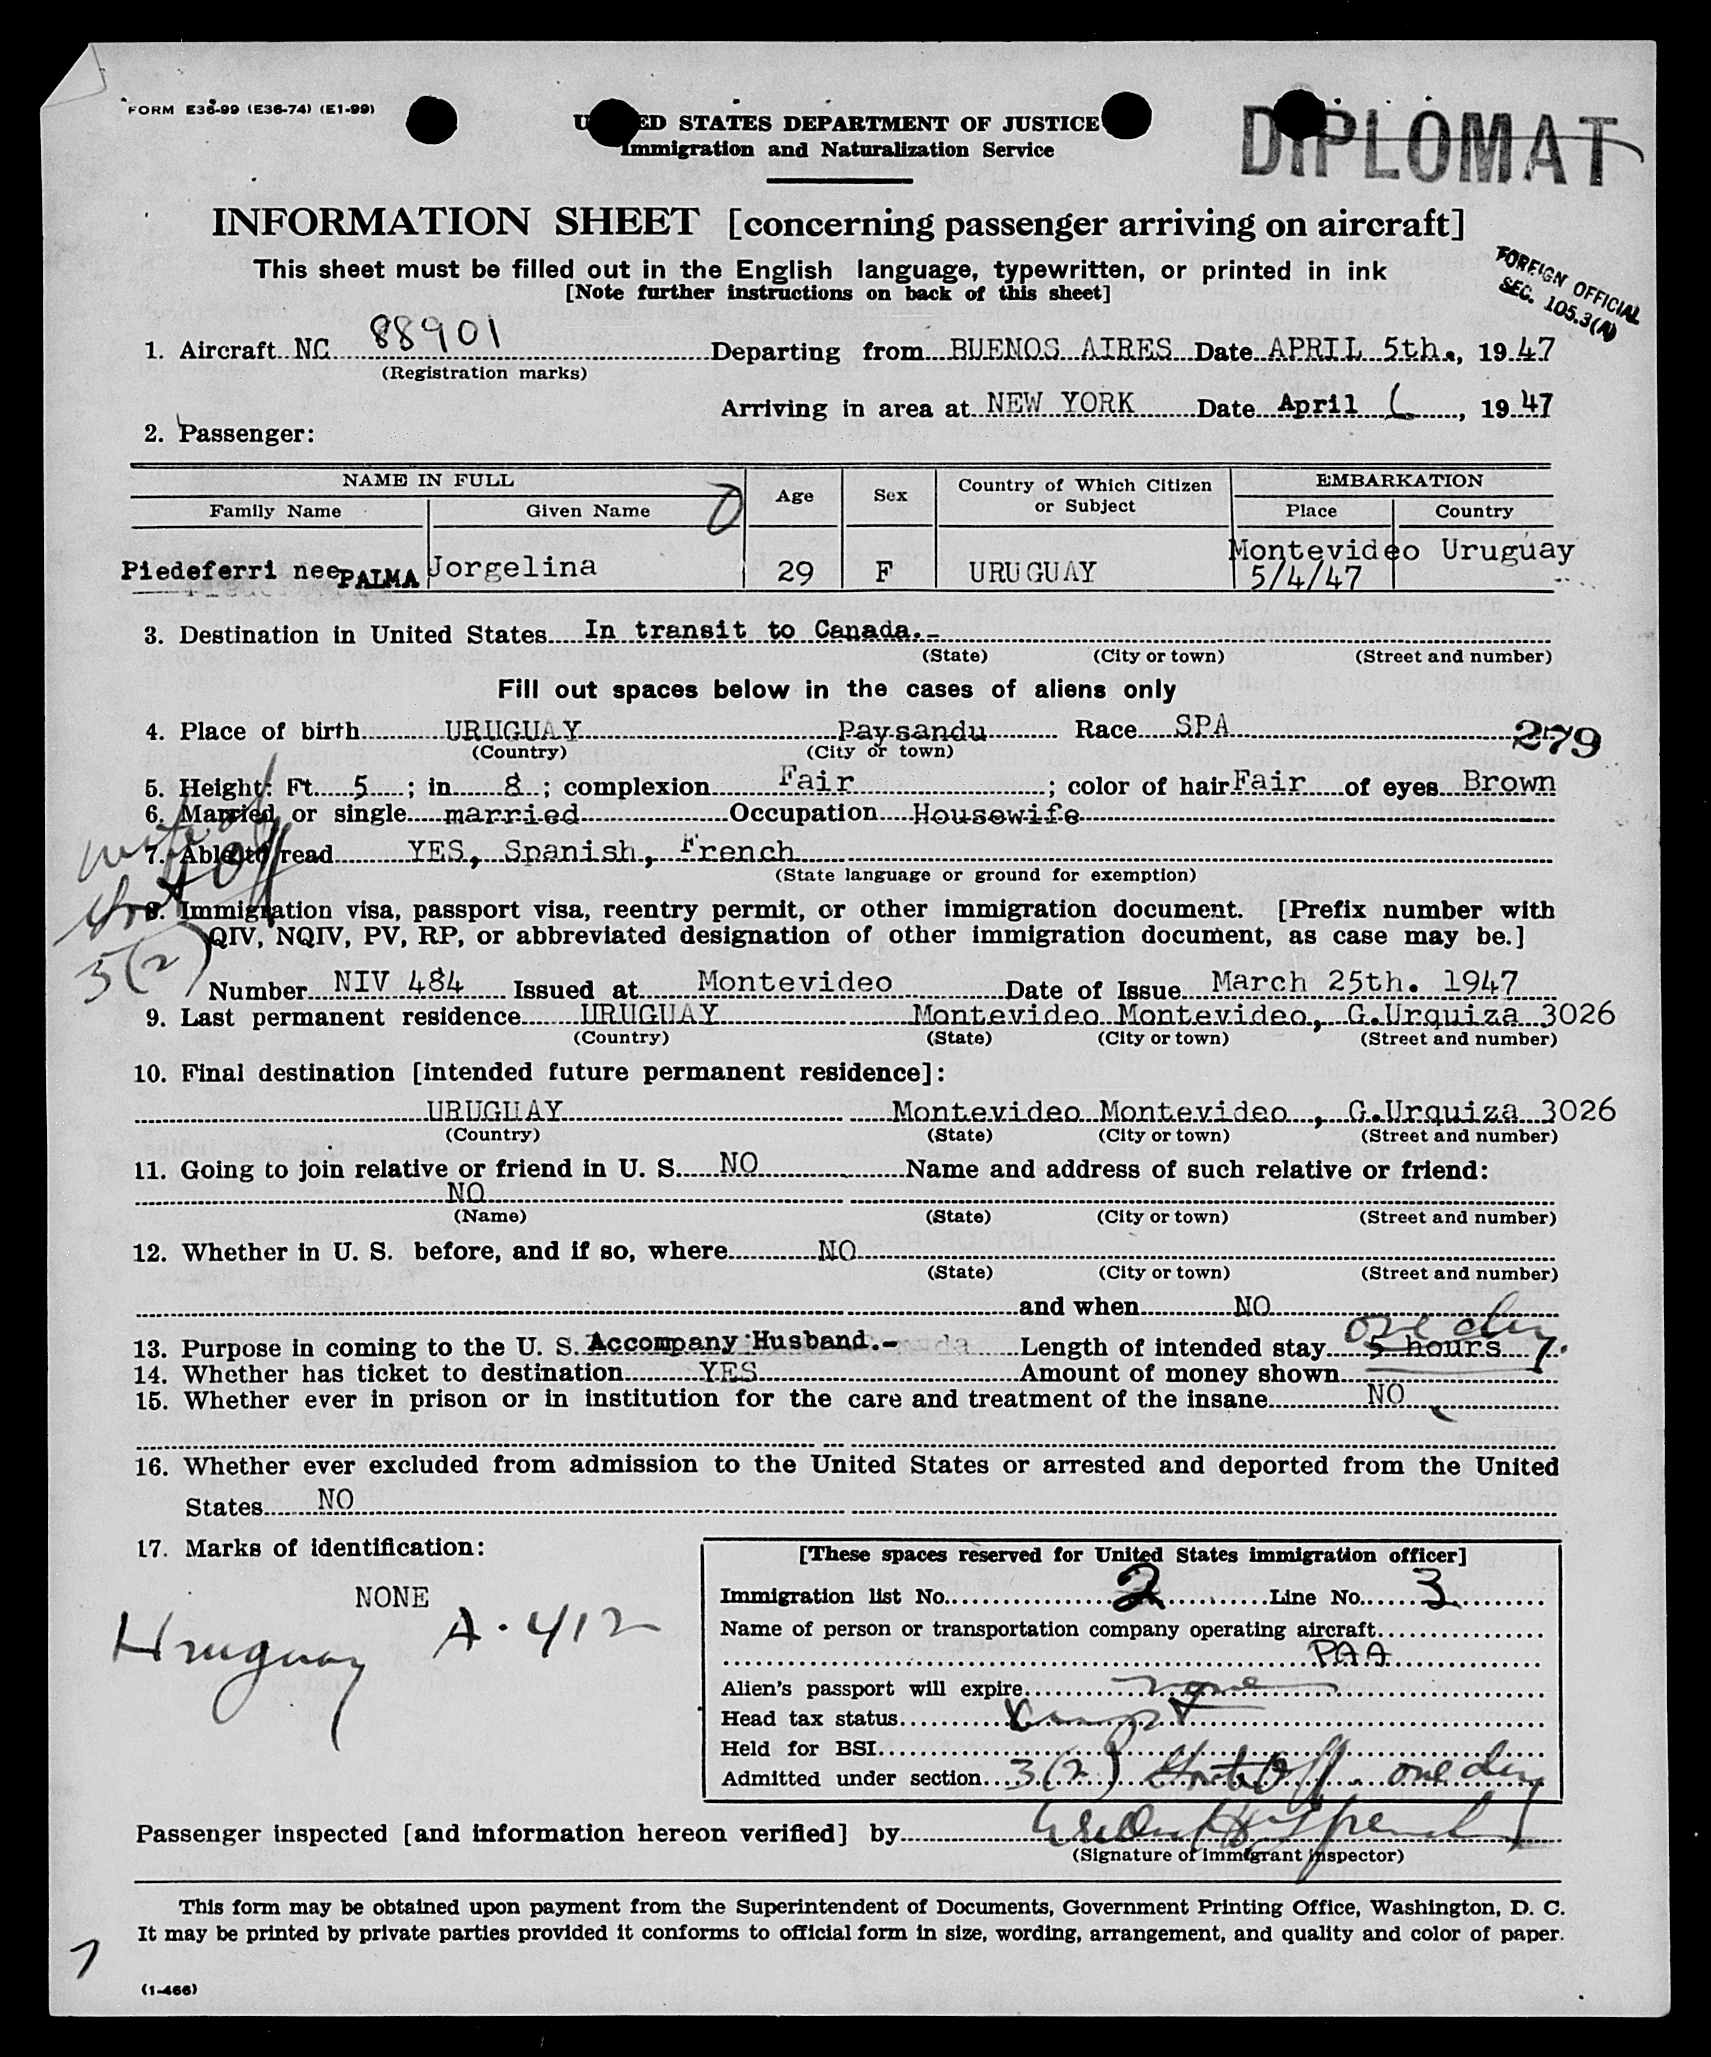 FORM E36-99 (E36-74) (E1-99)
DIPLOMAT
UNITED STATES DEPARTMENT OF JUSTICE
Immigration and Naturalization Service
INFORMATION SHEET [concerning passenger arriving on aircraft]
This sheet must be filled out in the English language, typewritten, or printed in ink
[Note further instructions on back of this sheet]
FOREIGN OFFICIAL
SEC. 105.3(A)
1. Aircraft NC 88901 Departing from BUENOS AIRES Date APRIL 5th., 1947
(Registration marks)
Arriving in area at NEW YORK Date April 6, 1947
2. Passenger:
NAME IN FULL Age Sex Country of Which Citizen or Subject EMBARKATION
Family Name Given Name Place Country
Piedeferri nee PALMA Jorgelina 29 F URUGUAY Montevideo Uruguay
5/4/47
3. Destination in United States In transit to Canada.-
(State) (City or town) (Street and number)
Fill out spaces below in the cases of aliens only
4. Place of birth URUGUAY Paysandu Race SPA 279
(Country) (City or town)
5. Height: Ft. 5; in 8; complexion Fair; color of hair Fair of eyes Brown
6. Married or single married Occupation Housewife
7. Able to read YES, Spanish, French
(State language or ground for exemption)
wife of
8. Immigration visa, passport visa, reentry permit, or other immigration document. [Prefix number with
QIV, NQIV, PV, RP, or abbreviated designation of other immigration document, as case may be.]
3(2)
Number NIV 484 Issued at Montevideo Date of Issue March 25th. 1947
9. Last permanent residence URUGUAY Montevideo Montevideo, G.Urquiza 3026
(Country) (State) (City or town) (Street and number)
10. Final destination [intended future permanent residence]:
URUGUAY Montevideo Montevideo , G.Urquiza 3026
(Country) (State) (City or town) (Street and number)
11. Going to join relative or friend in U. S. NO Name and address of such relative or friend:
NO
(Name) (State) (City or town) (Street and number)
12. Whether in U. S. before, and if so, where NO
(State) (City or town) (Street and number)
and when NO
one day
13. Purpose in coming to the U. S. Accompany Husband.- Length of intended stay 5 hours
14. Whether has ticket to destination YES Amount of money shown
15. Whether ever in prison or in institution for the care and treatment of the insane NO
16. Whether ever excluded from admission to the United States or arrested and deported from the United
States NO
17. Marks of identification:
NONE
Uruguay A-412
[These spaces reserved for United States immigration officer]
Immigration list No. 2 Line No. 3
Name of person or transportation company operating aircraft
PAA
Alien's passport will expire none
Head tax status Exempt
Held for BSI
Admitted under section 3(2) one day
Passenger inspected [and information hereon verified] by
(Signature of immigrant inspector)
This form may be obtained upon payment from the Superintendent of Documents, Government Printing Office, Washington, D. C.
It may be printed by private parties provided it conforms to official form in size, wording, arrangement, and quality and color of paper.
7
(1-466)